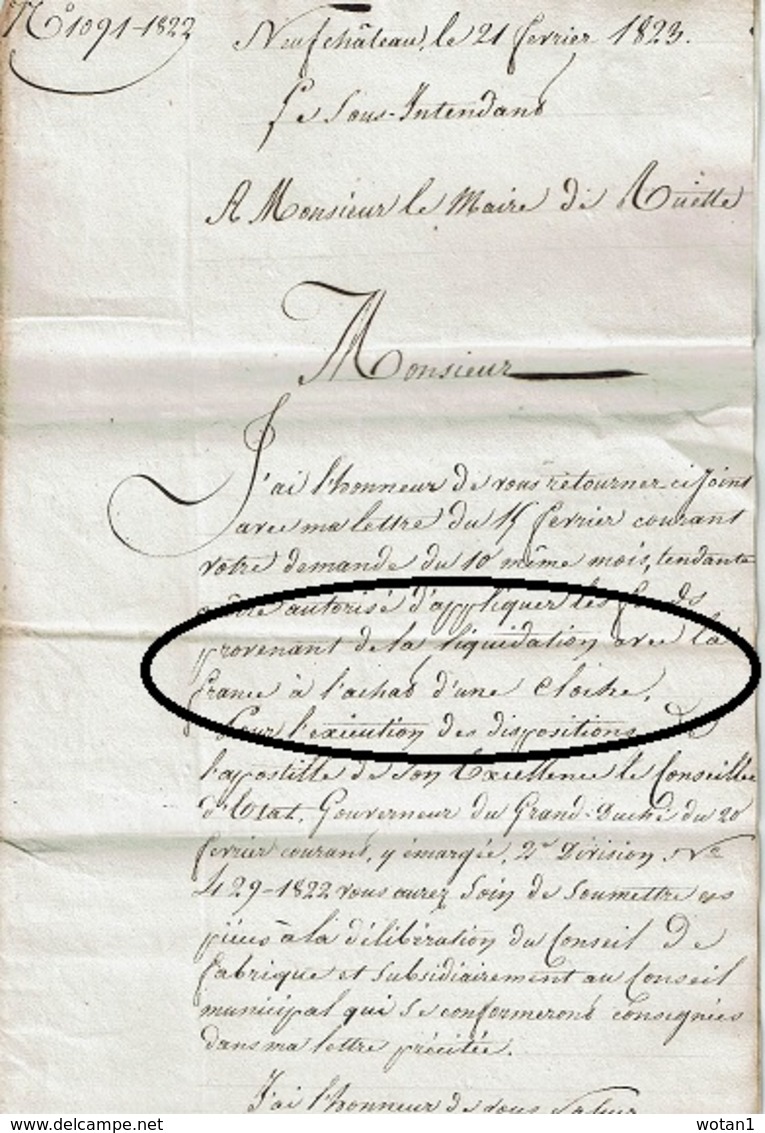 No 1091-1822
Neufchâteau, le 21 fevrier 1823.
Le Sous-Intendant
A Monsieur le Maire de Ruette
Monsieur
J'ai l'honneur de vous retourner ci joint
avec ma lettre du 15 fevrier courant
votre demande du 10 même mois, tendante
à être autorisé d'appliquer les fonds
provenant de la liquidation avec la
france à l'achat d'une cloche.
Pour l'exécution des dispositions de
l'apostille de Son Excellence le Conseiller
d'Etat, Gouverneur du Grand-Duché du 20
fevrier courant, y émargée, 2e Division No
429-1822 vous aurez soin de soumettre ces
pièces à la délibération du Conseil De
fabrique et subsidiairement au Conseil
municipal qui se conformeront consignées
dans ma lettre précitée.
J'ai l'honneur de vous saluer
www.delcampe.net
wotan1